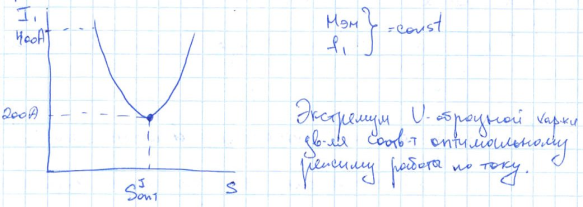 I₁
400А
200А
Sопт^I
S
Mэм
f₁
} = const
Экстремум U-образной харки
дв-ля соотв-т оптимальному
режиму работа по току.